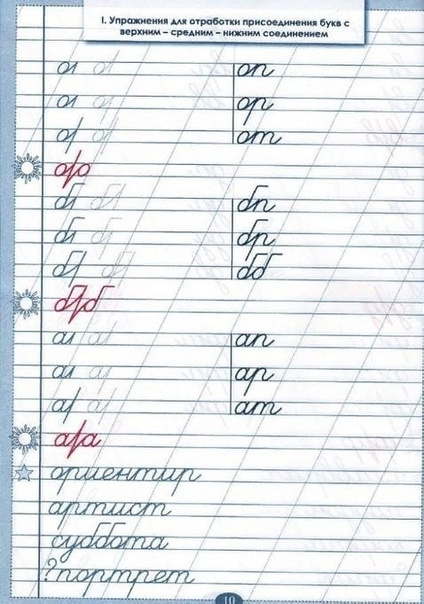 I. Упражнения для отработки присоединения букв с
верхним – средним – нижним соединением
оп
ор
от
о/о
бп
бр
бб
б/б
ап
ар
ат
а/а
ориентир
артист
суббота
?портрет
10